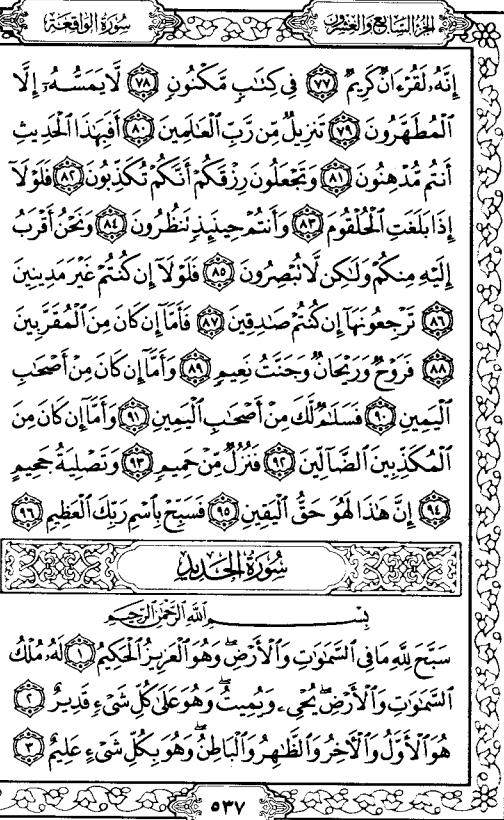 الجزء السابع والعشرون سورة الواقعة
إِنَّهُۥ لَقُرْءَانٌ كَرِيمٌ ٧٧ فِى كِتَٰبٍ مَّكْنُونٍ ٧٨ لَّا يَمَسُّهُۥٓ إِلَّا
ٱلْمُطَهَّرُونَ ٧٩ تَنزِيلٌ مِّن رَّبِّ ٱلْعَٰلَمِينَ ٨٠ أَفَبِهَٰذَا ٱلْحَدِيثِ
أَنتُم مُّدْهِنُونَ ٨١ وَتَجْعَلُونَ رِزْقَكُمْ أَنَّكُمْ تُكَذِّبُونَ ٨٢ فَلَوْلَآ
إِذَا بَلَغَتِ ٱلْحُلْقُومَ ٨٣ وَأَنتُمْ حِينَئِذٍ تَنظُرُونَ ٨٤ وَنَحْنُ أَقْرَبُ
إِلَيْهِ مِنكُمْ وَلَٰكِن لَّا تُبْصِرُونَ ٨٥ فَلَوْلَآ إِن كُنتُمْ غَيْرَ مَدِينِينَ
٨٦ تَرْجِعُونَهَآ إِن كُنتُمْ صَٰدِقِينَ ٨٧ فَأَمَّآ إِن كَانَ مِنَ ٱلْمُقَرَّبِينَ
٨٨ فَرَوْحٌ وَرَيْحَانٌ وَجَنَّتُ نَعِيمٍ ٨٩ وَأَمَّآ إِن كَانَ مِنْ أَصْحَٰبِ
ٱلْيَمِينِ ٩٠ فَسَلَٰمٌ لَّكَ مِنْ أَصْحَٰبِ ٱلْيَمِينِ ٩١ وَأَمَّآ إِن كَانَ مِنَ
ٱلْمُكَذِّبِينَ ٱلضَّآلِّينَ ٩٢ فَنُزُلٌ مِّنْ حَمِيمٍ ٩٣ وَتَصْلِيَةُ جَحِيمٍ
٩٤ إِنَّ هَٰذَا لَهُوَ حَقُّ ٱلْيَقِينِ ٩٥ فَسَبِّحْ بِٱسْمِ رَبِّكَ ٱلْعَظِيمِ ٩٦
سُورَةُ الحَدِيدِ
بِسْمِ ٱللَّهِ ٱلرَّحْمَٰنِ ٱلرَّحِيمِ
سَبَّحَ لِلَّهِ مَا فِى ٱلسَّمَٰوَٰتِ وَٱلْأَرْضِ ۖ وَهُوَ ٱلْعَزِيزُ ٱلْحَكِيمُ ١ لَهُۥ مُلْكُ
ٱلسَّمَٰوَٰتِ وَٱلْأَرْضِ ۖ يُحْىِۦ وَيُمِيتُ ۖ وَهُوَ عَلَىٰ كُلِّ شَىْءٍ قَدِيرٌ ٢
هُوَ ٱلْأَوَّلُ وَٱلْءَاخِرُ وَٱلظَّٰهِرُ وَٱلْبَاطِنُ ۖ وَهُوَ بِكُلِّ شَىْءٍ عَلِيمٌ ٣
٥٣٧